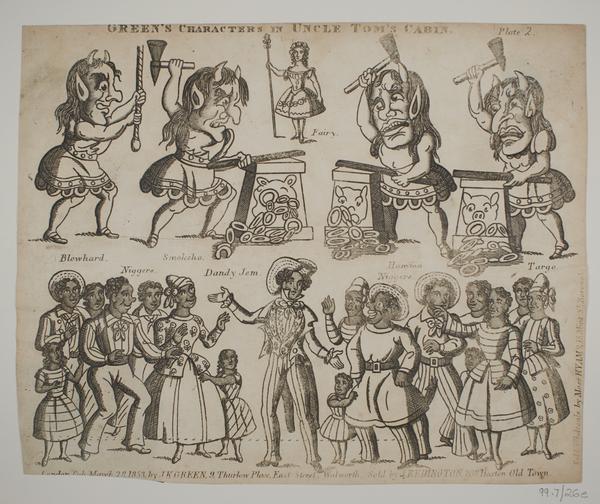 GREEN'S CHARACTERS IN UNCLE TOM'S CABIN.
Plate 2.
Fairy.
Blowhard.
Smokeho.
Targo.
Niggers.
Dandy Jem.
Niggers
London Pub March 28, 1853, by J K GREEN, 9, Thurlow Place, East Street, Walworth. Sold by J. REDINGTON, Hoxton Old Town.
99.7/26e